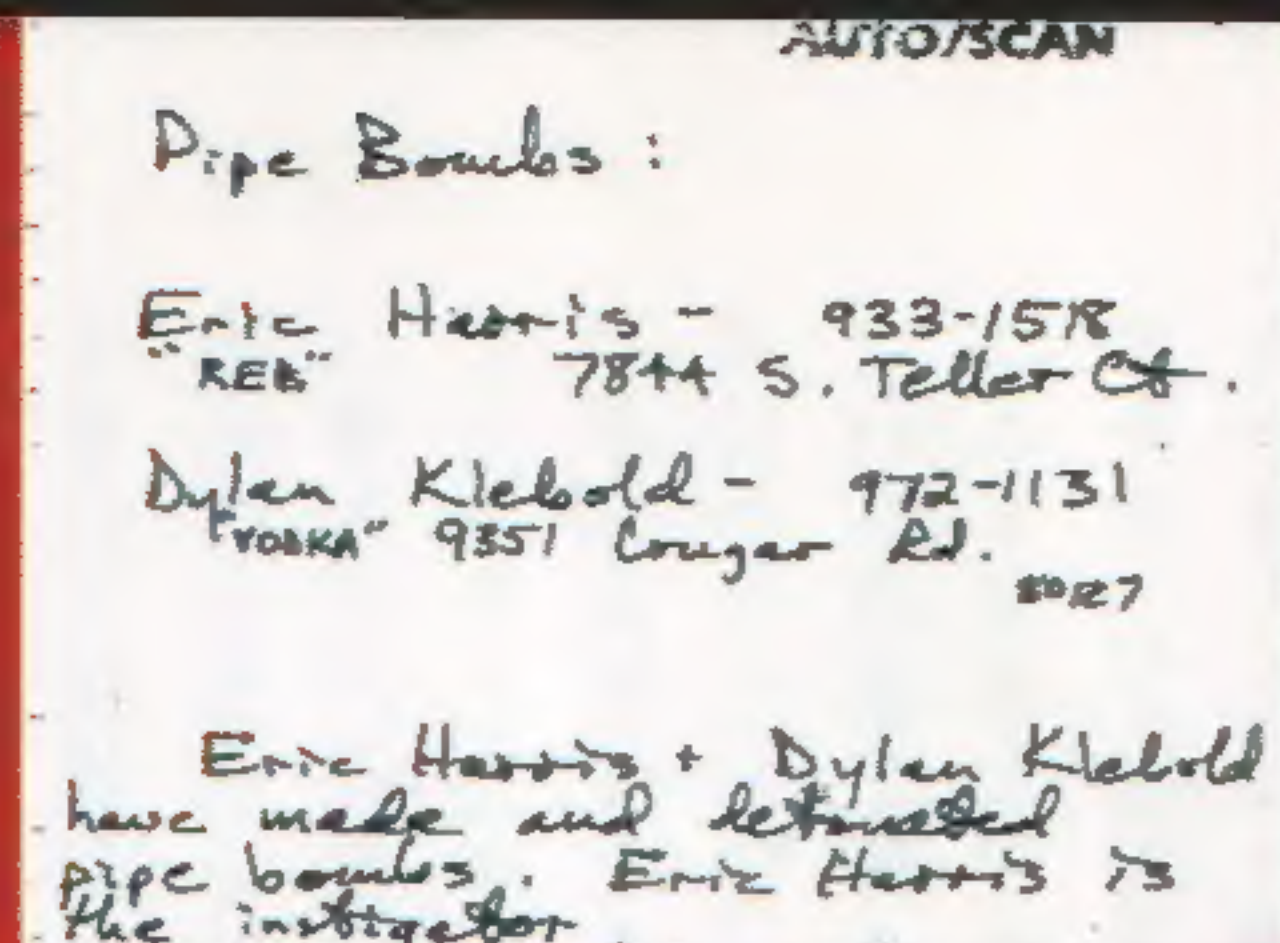 AUTO/SCAN
Pipe Bombs :
Eric Harris - 933-1518
"REB" 7844 S. Teller Ct.
Dylan Klebold - 972-1131
"VODKA" 9351 Cougar Rd.
Eric Harris + Dylan Klebold
have made and detonated
pipe bombs. Eric Harris is
the instigator